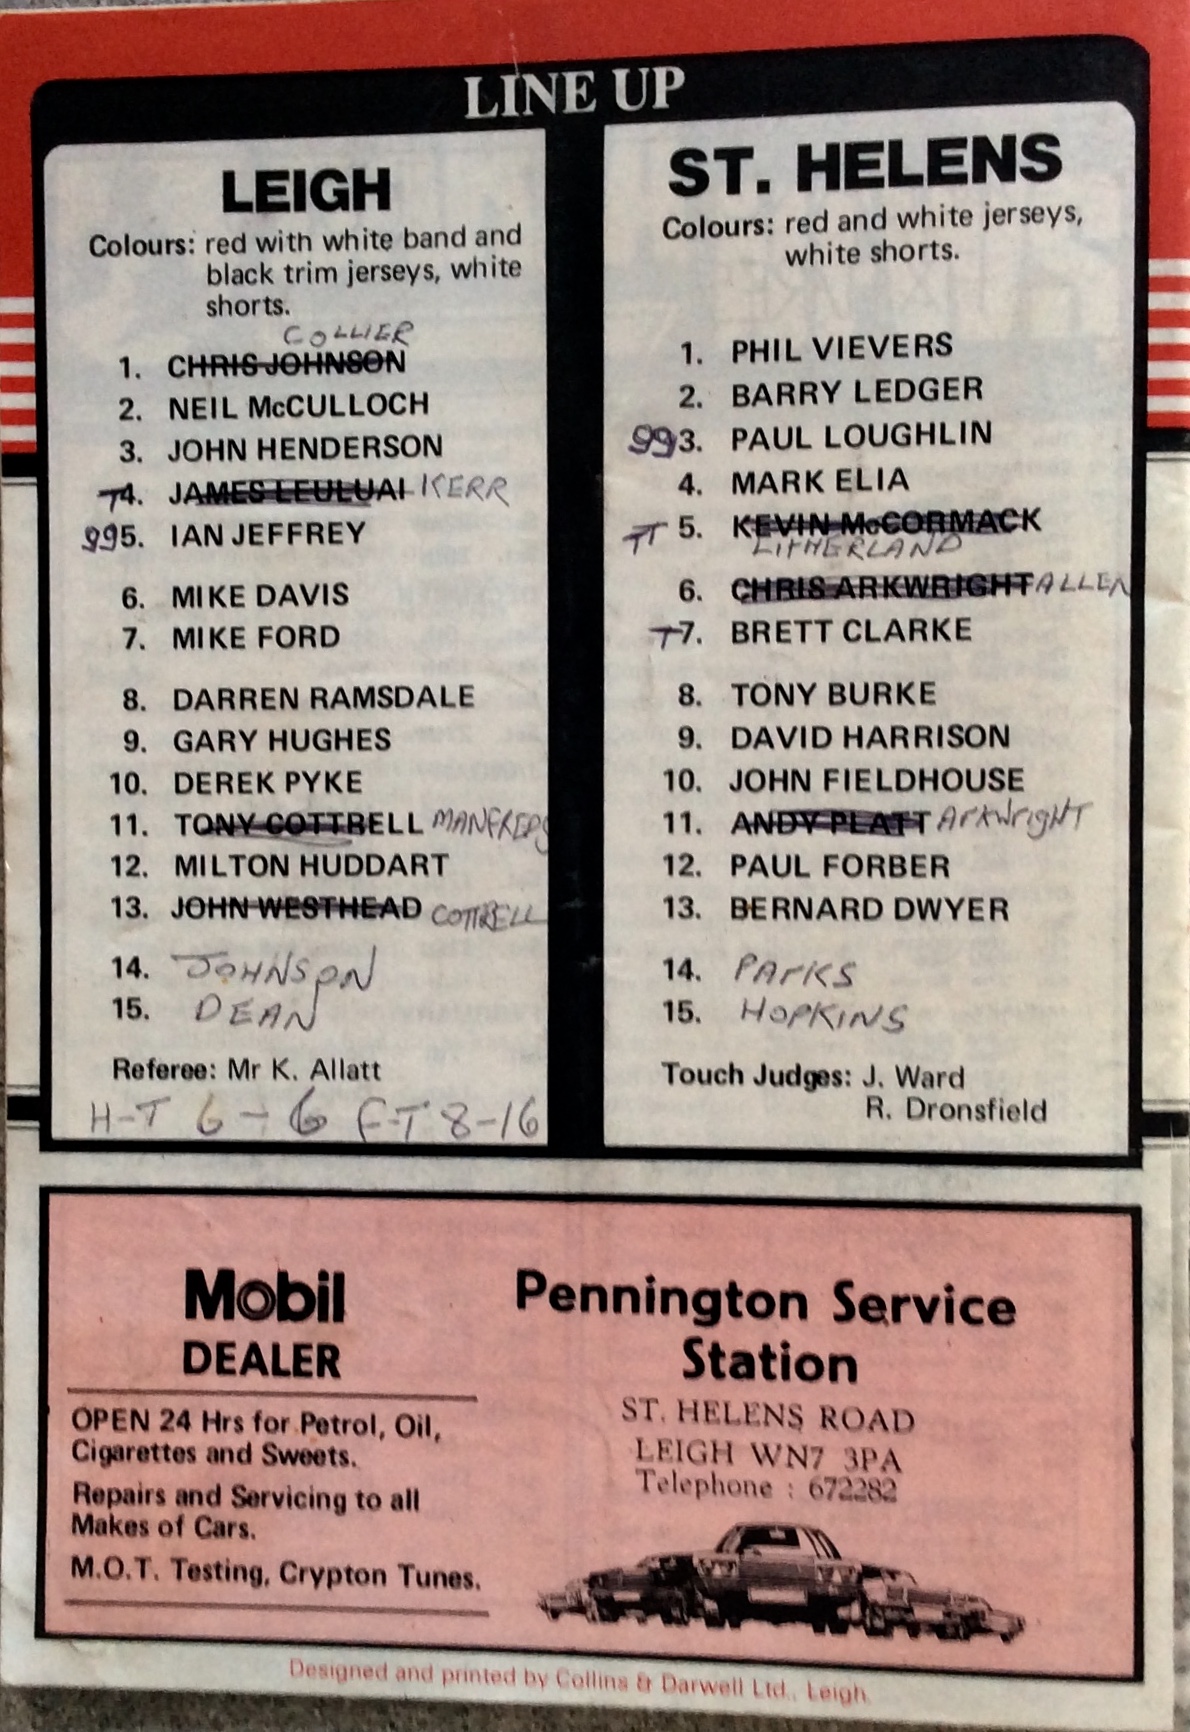 LINE UP
LEIGH
Colours: red with white band and
black trim jerseys, white
shorts.
COLLIER
1. CHRIS JOHNSON
2. NEIL McCULLOCH
3. JOHN HENDERSON
T4. JAMES LEULUAI KERR
995. IAN JEFFREY
6. MIKE DAVIS
7. MIKE FORD
8. DARREN RAMSDALE
9. GARY HUGHES
10. DEREK PYKE
11. TONY COTTRELL MANFREDS
12. MILTON HUDDART
13. JOHN WESTHEAD COTTRELL
14. JOHNSON
15. DEAN
Referee: Mr K. Allatt
H-T 6-6 F-T 8-16
ST. HELENS
Colours: red and white jerseys,
white shorts.
1. PHIL VIEVERS
2. BARRY LEDGER
993. PAUL LOUGHLIN
4. MARK ELIA
TT 5. KEVIN McCORMACK
LITHERLAND
6. CHRIS ARKWRIGHT ALLEN
T7. BRETT CLARKE
8. TONY BURKE
9. DAVID HARRISON
10. JOHN FIELDHOUSE
11. ANDY PLATT ArKWrigHT
12. PAUL FORBER
13. BERNARD DWYER
14. PARKS
15. HOPKINS
Touch Judges: J. Ward
R. Dronsfield
Mobil
DEALER
OPEN 24 Hrs for Petrol, Oil,
Cigarettes and Sweets.
Repairs and Servicing to all
Makes of Cars.
M.O.T. Testing, Crypton Tunes.
Pennington Service
Station
ST. HELENS ROAD
LEIGH WN7 3PA
Telephone : 672282
Designed and printed by Collins & Darwell Ltd., Leigh.